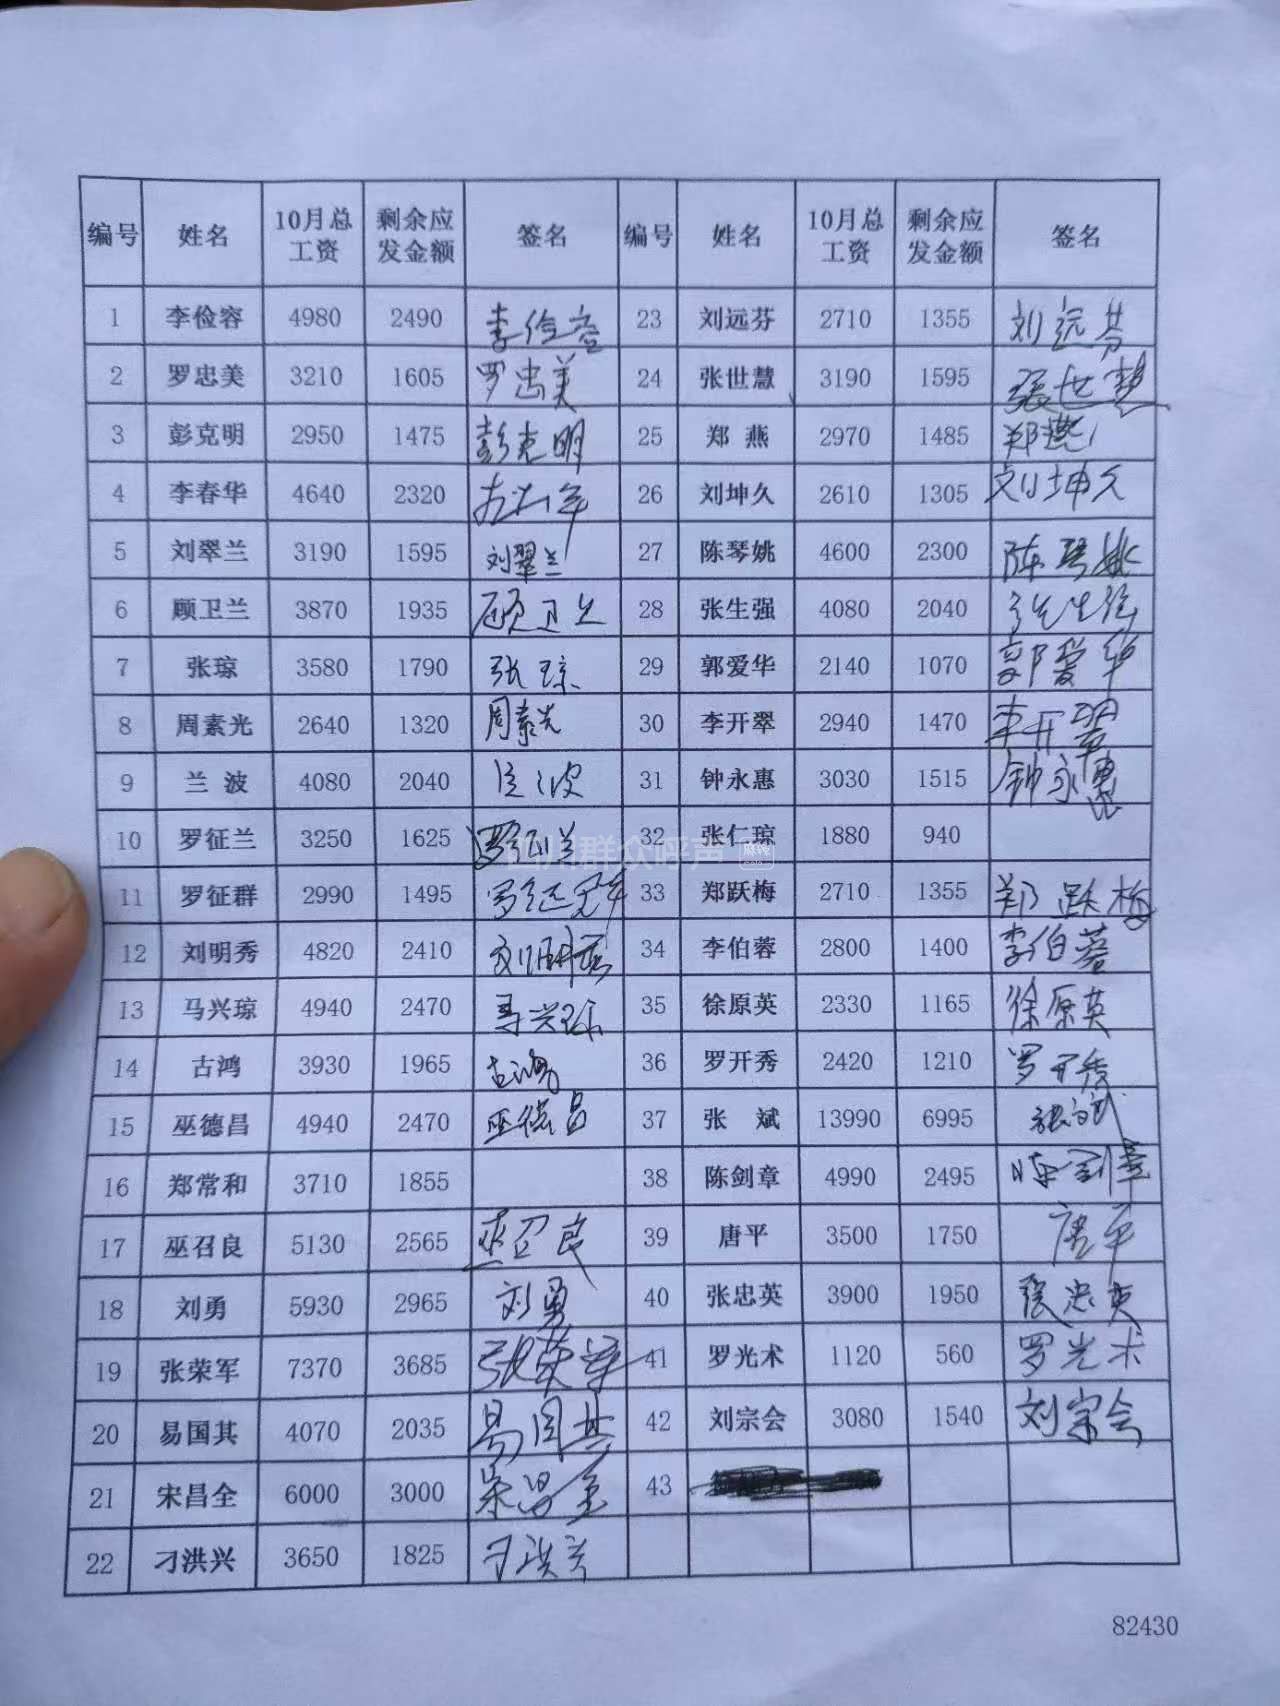 编号 姓名 10月总工资 剩余应发金额 签名 编号 姓名 10月总工资 剩余应发金额 签名
1 李俭容 4980 2490 李俭容 23 刘远芬 2710 1355 刘远芬
2 罗忠美 3210 1605 罗忠美 24 张世慧 3190 1595 張世慧
3 彭克明 2950 1475 彭克明 25 郑燕 2970 1485 郑燕
4 李春华 4640 2320 26 刘坤久 2610 1305 刘坤久
5 刘翠兰 3190 1595 刘翠兰 27 陈琴姚 4600 2300 陈琴姚
6 顾卫兰 3870 1935 顾卫兰 28 张生强 4080 2040 张生强
7 张琼 3580 1790 张琼 29 郭爱华 2140 1070 郭爱华
8 周素光 2640 1320 周素光 30 李开翠 2940 1470 李开翠
9 兰波 4080 2040 兰波 31 钟永惠 3030 1515 钟永惠
10 罗征兰 3250 1625 罗征兰 32 张仁琼 1880 940
群众呼声
11 罗征群 2990 1495 罗征群 33 郑跃梅 2710 1355 郑跃梅
12 刘明秀 4820 2410 刘明秀 34 李伯蓉 2800 1400 李伯蓉
13 马兴琼 4940 2470 马兴琼 35 徐原英 2330 1165 徐原英
14 古鸿 3930 1965 古鸿 36 罗开秀 2420 1210 罗开秀
15 巫德昌 4940 2470 巫德昌 37 张斌 13990 6995 張斌
16 郑常和 3710 1855 38 陈剑章 4990 2495 陈剑章
17 巫召良 5130 2565 巫召良 39 唐平 3500 1750 唐平
18 刘勇 5930 2965 刘勇 40 张忠英 3900 1950 張忠英
19 张荣军 7370 3685 张荣军 41 罗光术 1120 560 罗光术
20 易国其 4070 2035 易国其 42 刘宗会 3080 1540 刘宗会
21 宋昌全 6000 3000 宋昌全 43
22 刁洪兴 3650 1825 刁洪兴
82430